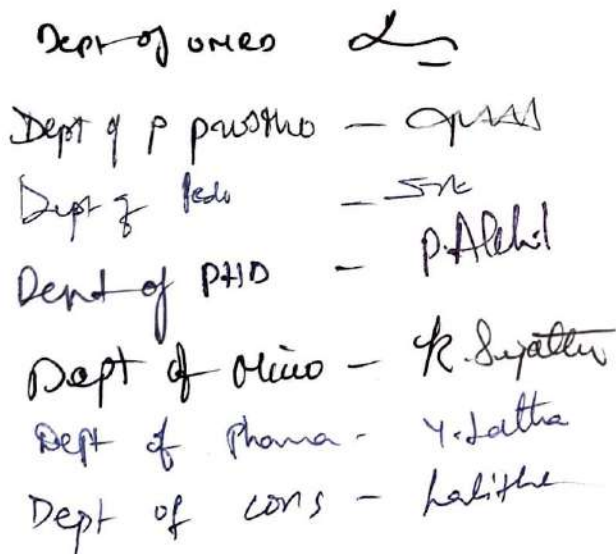 Dept of OMRD
Dept of P prostho -
Dept of Pedo -
Dept of PHD - P. Akhil
Dept of Micro - K. Sujatha
Dept of Pharma - Y. Latha
Dept of cons - Lalitha